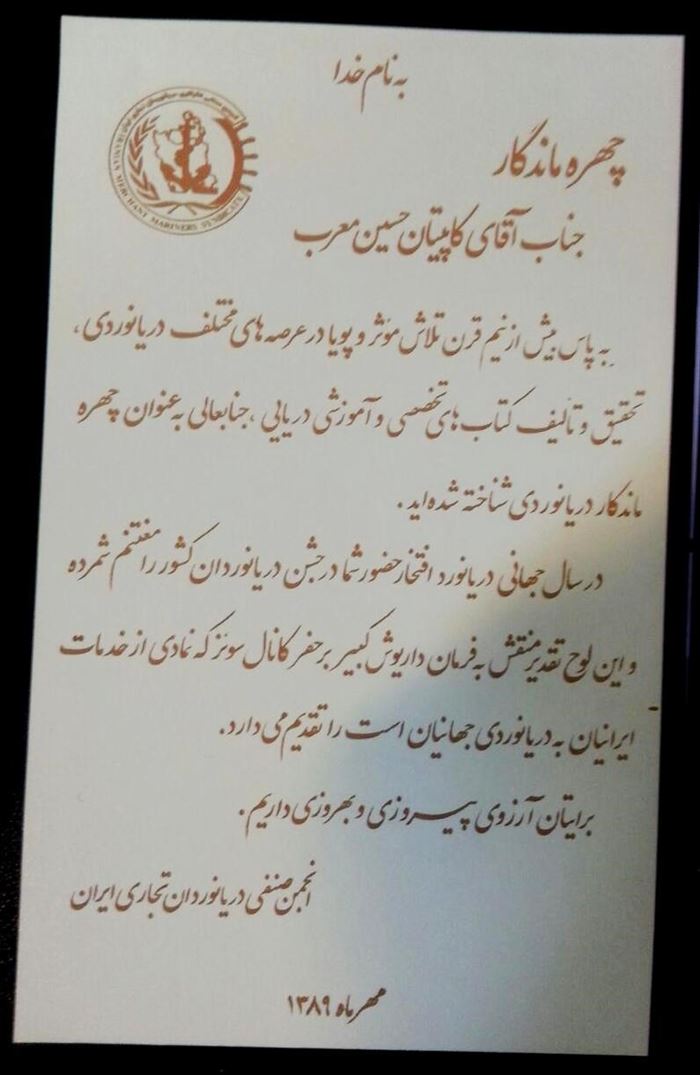 به نام خدا
چهره ماندگار
جناب آقای کاپیتان حسین معرب
به پاس بیش از نیم قرن تلاش مؤثر و پویا در عرصه های مختلف دریانوردی،
تحقیق و تألیف کتاب های تخصصی و آموزشی دریایی، جنابعالی به عنوان چهره
ماندگار دریانوردی شناخته شده اید.
در سال جهانی دریانورد افتخار حضور شما در جشن دریانوردان کشور را مغتنم شمرده
و این لوح تقدیر منقش به فرمان داریوش کبیر بر حفر کانال سوئز که نمادی از خدمات
ایرانیان به دریانوردی جهانیان است را تقدیم می دارد.
برایتان آرزوی پیروزی و بهروزی داریم.
انجمن صنفی دریانوردان تجاری ایران
مهرماه ۱۳۸۹
IRANIAN MERCHANT MARINERS SYNDICATE